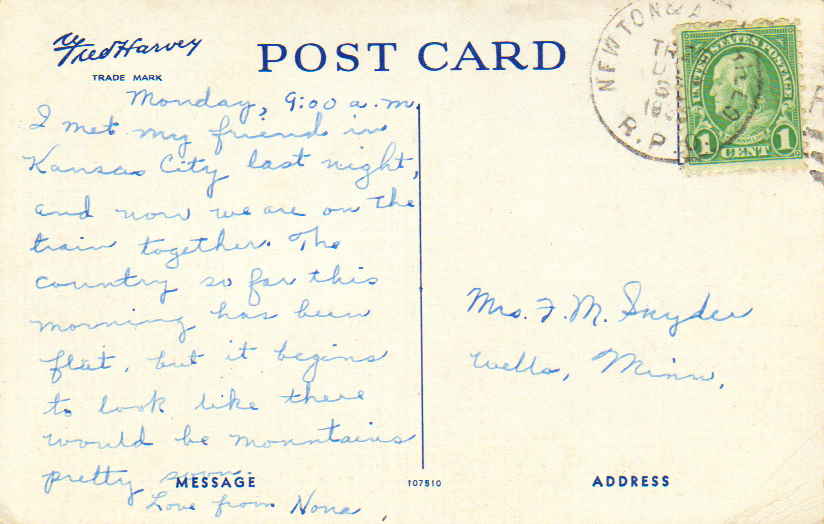 Fred Harvey
TRADE MARK
POST CARD
NEWTON & A
R.P.
UNITED STATES POSTAGE
1 CENT 1
Monday, 9:00 a.m.
I met my friend in
Kansas City last night,
and now we are on the
train together. The
country so far this
morning has been
flat, but it begins
to look like there
would be mountains
pretty soon.
Love from Nona
Mrs. F. M. Snyder
Wells, Minn.
MESSAGE
107510
ADDRESS